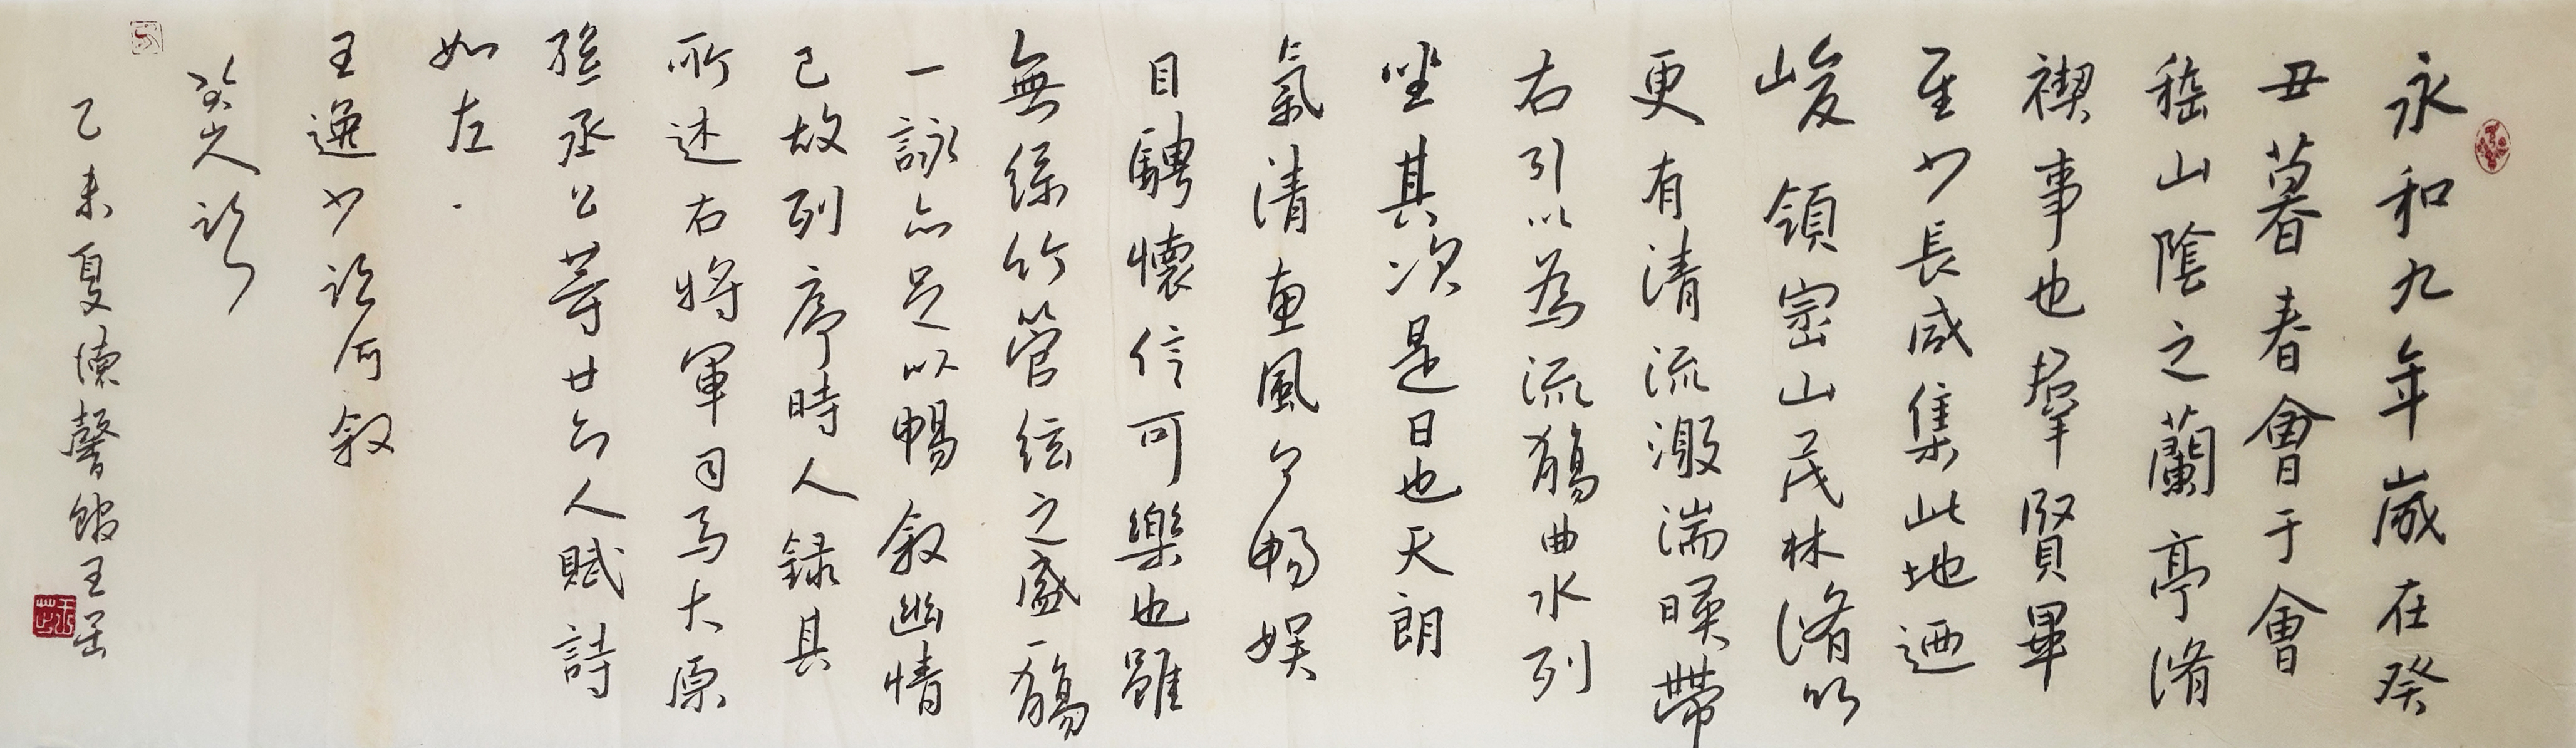 永和九年歲在癸
丑暮春會于會
嵇山陰之蘭亭脩
禊事也群賢畢
至少長咸集此地迺
峻領崇山茂林脩竹
更有清流激湍暎帶
右引以為流觴曲水列
坐其次是日也天朗
氣清惠風和暢娱
目騁懷信可樂也雖
無絲竹管絃之盛一觴
一詠亦足以暢敘幽情
已故列序時人録其
所述右將軍司馬大原
孫丞公等廿六人賦詩
如左
王逸少敘
乙未夏馨館王